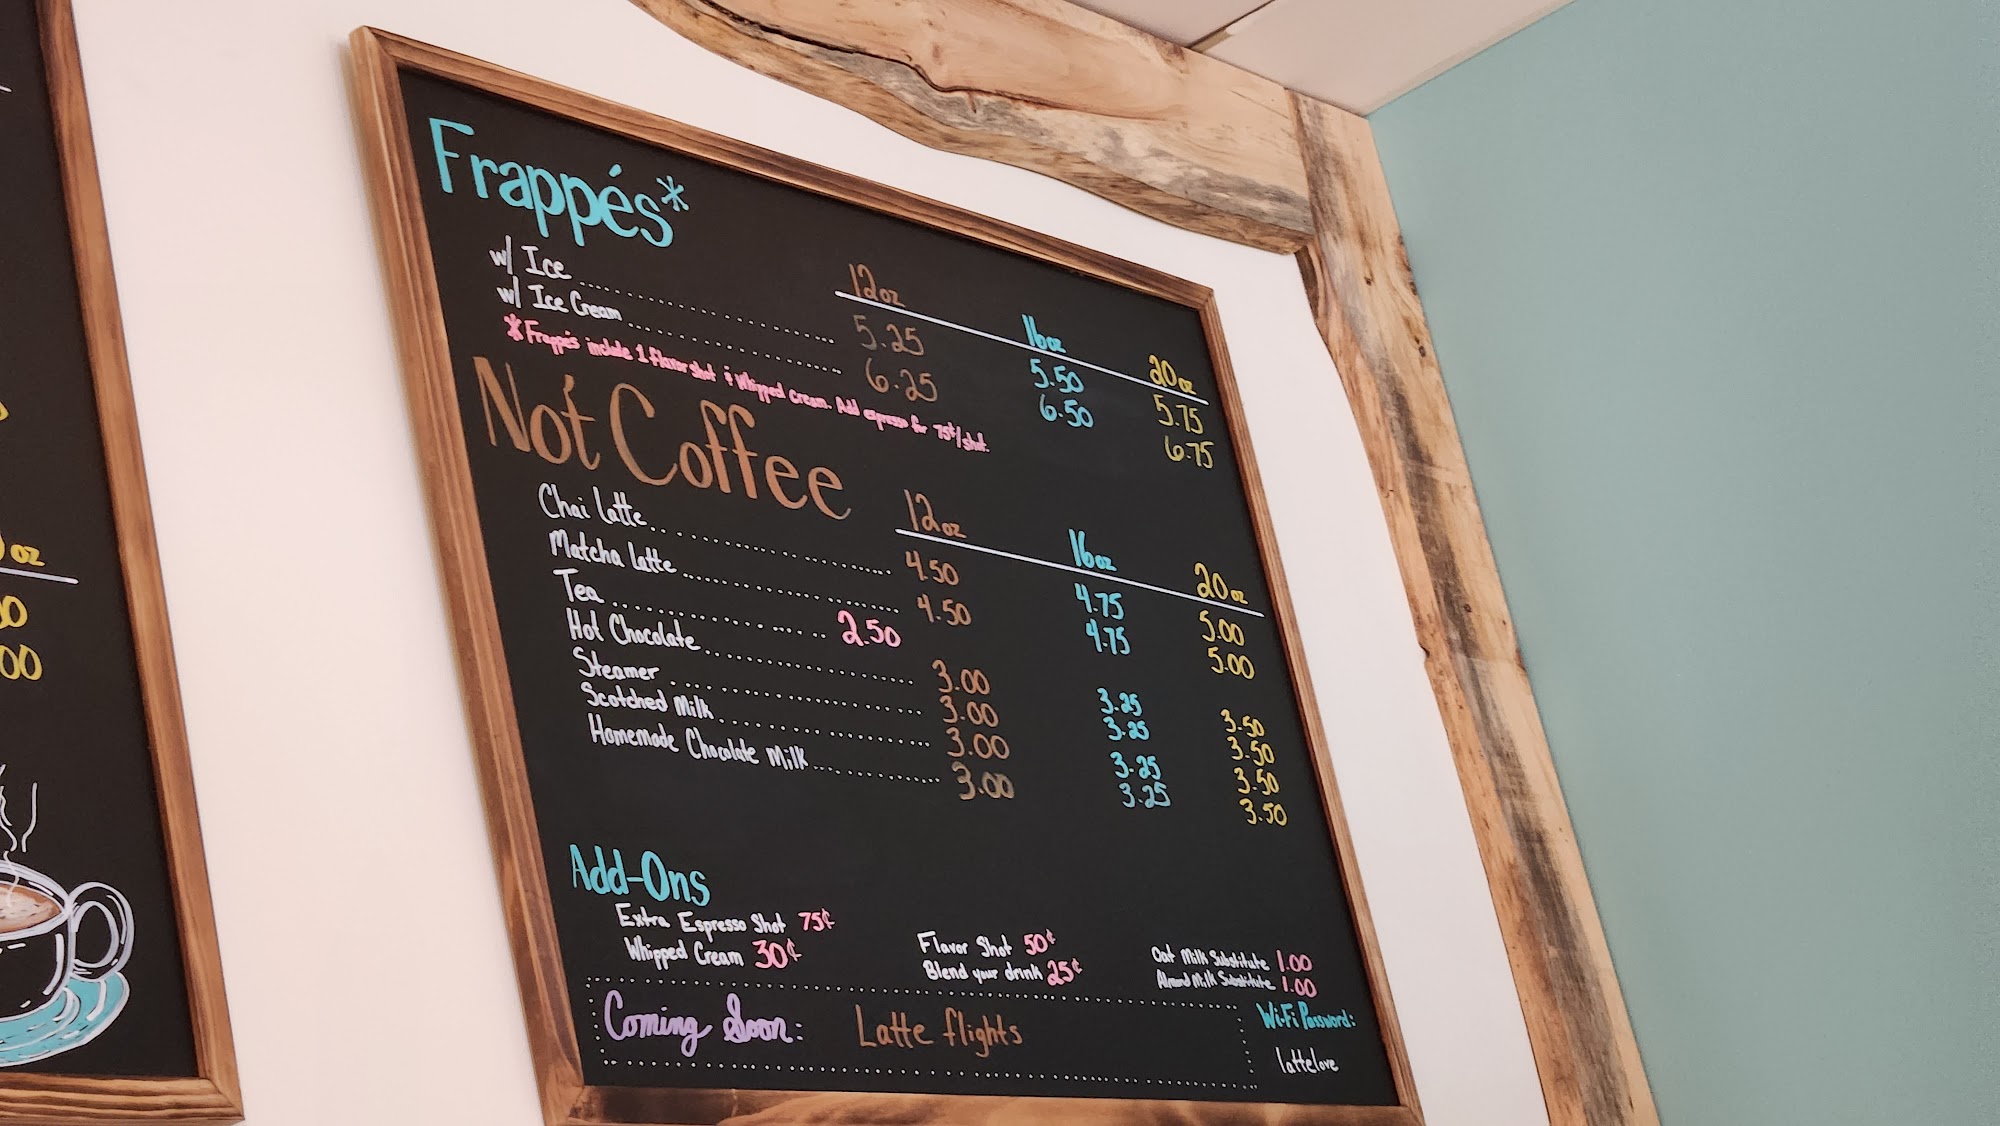 Frappés*
12oz 16oz 20oz
w/ Ice 5.25 5.50 5.75
w/ Ice Cream 6.25 6.50 6.75
*Frappés include 1 flavor shot & whipped cream. Add espresso for 75¢/shot.
Not Coffee
12oz 16oz 20oz
Chai latte 4.50 4.75 5.00
Matcha latte 4.50 4.75 5.00
Tea 2.50
Hot Chocolate 3.00 3.25 3.50
Steamer 3.00 3.25 3.50
Scotched Milk 3.00 3.25 3.50
Homemade Chocolate Milk 3.00 3.25 3.50
Add-Ons
Extra Espresso Shot 75¢
Whipped Cream 30¢
Flavor Shot 50¢
Blend your drink 25¢
Oat Milk Substitute 1.00
Almond Milk Substitute 1.00
Coming Soon: Latte flights
Wi-Fi Password:
lattelove
oz
00